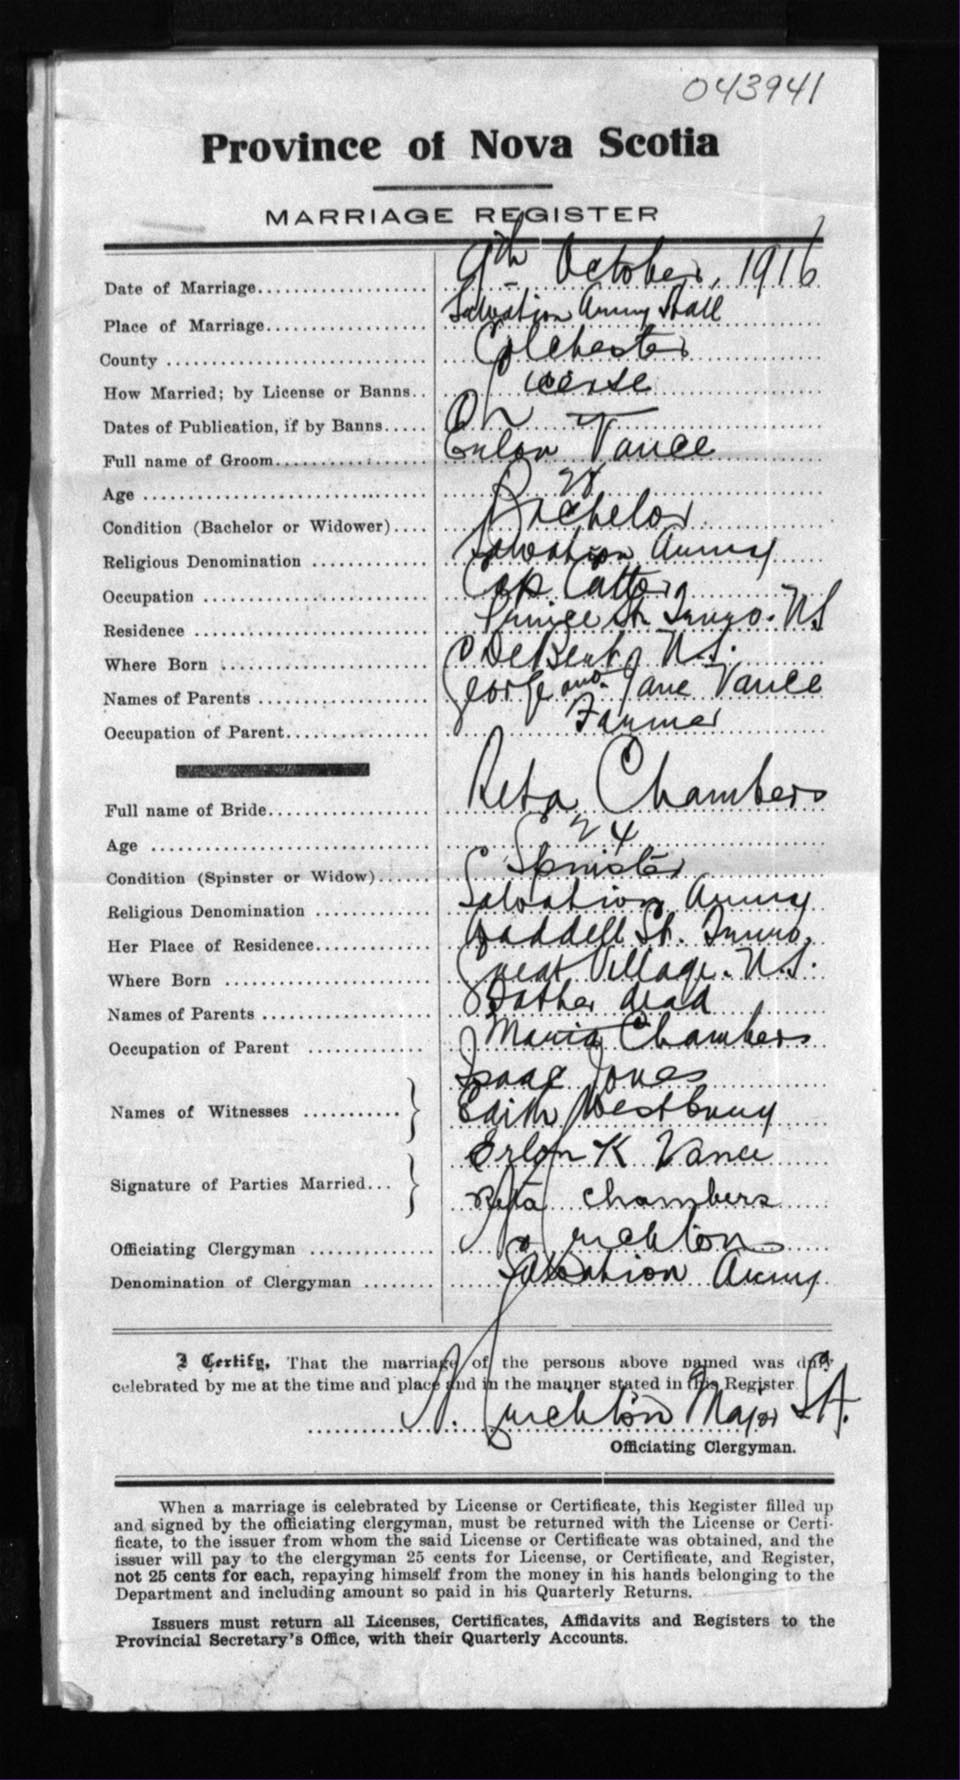 043941
Province of Nova Scotia
MARRIAGE REGISTER
Date of Marriage 9th October, 1916
Place of Marriage Salvation Army Hall
County Colchester
How Married; by License or Banns License
Dates of Publication, if by Banns
Full name of Groom Erlon Vance
Age 28
Condition (Bachelor or Widower) Bachelor
Religious Denomination Salvation Army
Occupation Cap Cutter
Residence Prince St. Truro. N.S
Where Born DeBert N.S.
Names of Parents George and Jane Vance
Occupation of Parent Farmer
Full name of Bride Reta Chambers
Age 24
Condition (Spinster or Widow) Spinster
Religious Denomination Salvation Army
Her Place of Residence Waddell St. Truro.
Where Born Great Village. N.S.
Names of Parents Father dead
Occupation of Parent Maria Chambers
Isaac Jones
Names of Witnesses Edith Westbury
Erlon K Vance
Signature of Parties Married
Reta Chambers
Officiating Clergyman Crichton
Denomination of Clergyman Salvation Army
I Certify, That the marriage of the persons above named was duly
celebrated by me at the time and place and in the manner stated in this Register
Crichton Major S.A.
Officiating Clergyman.
When a marriage is celebrated by License or Certificate, this Register filled up
and signed by the officiating clergyman, must be returned with the License or Certi-
ficate, to the issuer from whom the said License or Certificate was obtained, and the
issuer will pay to the clergyman 25 cents for License, or Certificate, and Register,
not 25 cents for each, repaying himself from the money in his hands belonging to the
Department and including amount so paid in his Quarterly Returns.
Issuers must return all Licenses, Certificates, Affidavits and Registers to the
Provincial Secretary's Office, with their Quarterly Accounts.